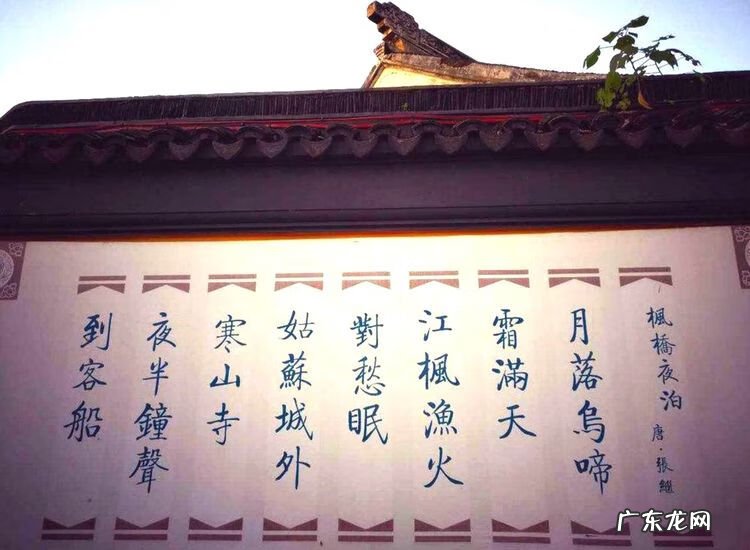 楓橋夜泊 唐·張繼
月落烏啼
霜滿天
江楓漁火
對愁眠
姑蘇城外
寒山寺
夜半鐘聲
到客船
广东龙网